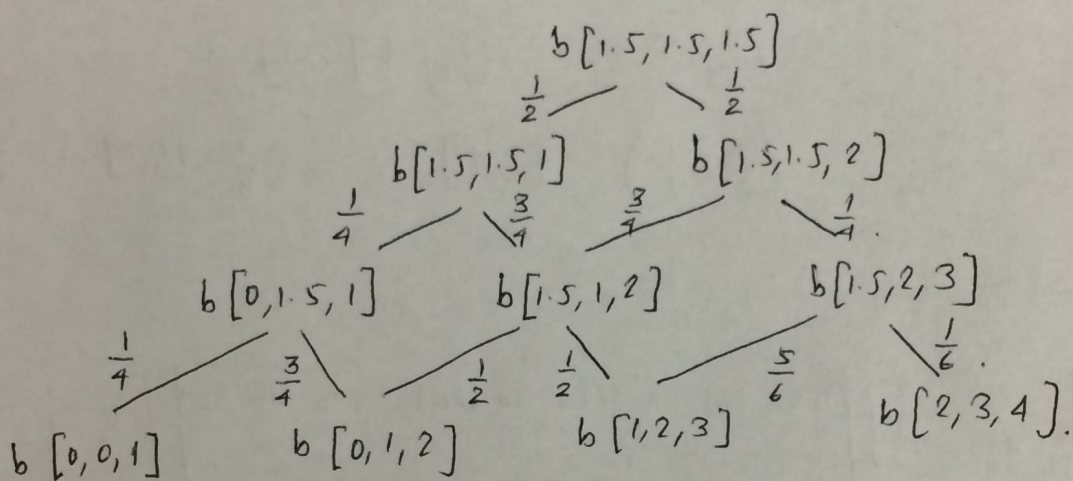 b[1.5, 1.5, 1.5]
1/2 1/2
b[1.5, 1.5, 1] b[1.5, 1.5, 2]
1/4 3/4 3/4 1/4.
b[0, 1.5, 1] b[1.5, 1, 2] b[1.5, 2, 3]
1/4 3/4 1/2 1/2 5/6 1/6.
b[0, 0, 1] b[0, 1, 2] b[1, 2, 3] b[2, 3, 4].